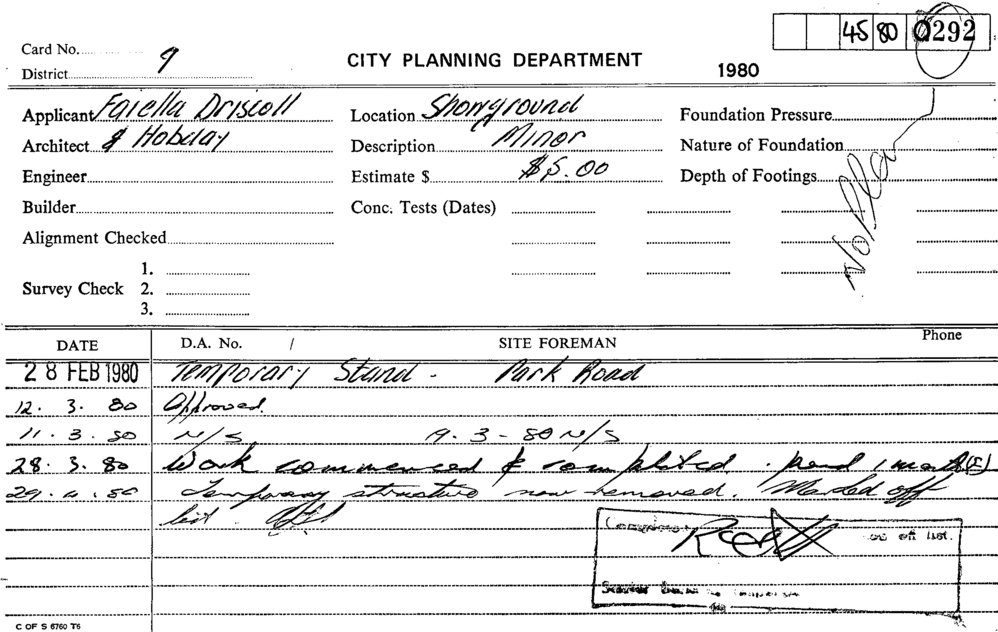 45 80 0292
Card No. 9
District
CITY PLANNING DEPARTMENT
1980
Applicant Faiella Driscoll
Architect & Hobday
Engineer
Builder
Alignment Checked
Survey Check 1.
2.
3.
Location Showground
Description Minor
Estimate $ $5.00
Conc. Tests (Dates)
Foundation Pressure
Nature of Foundation
Depth of Footings
No Plan
DATE D.A. No. / SITE FOREMAN Phone
28 FEB 1980 Temporary Stand - Park Road
12. 3. 80 Approved.
11. 3. 80 N/S 19. 3 - 80 N/S
28. 3. 80 Work commenced & completed. pend 1 month
29. 4. 80 Temporary structure now removed. Marked off
list.
off list.
C OF S 6760 T6